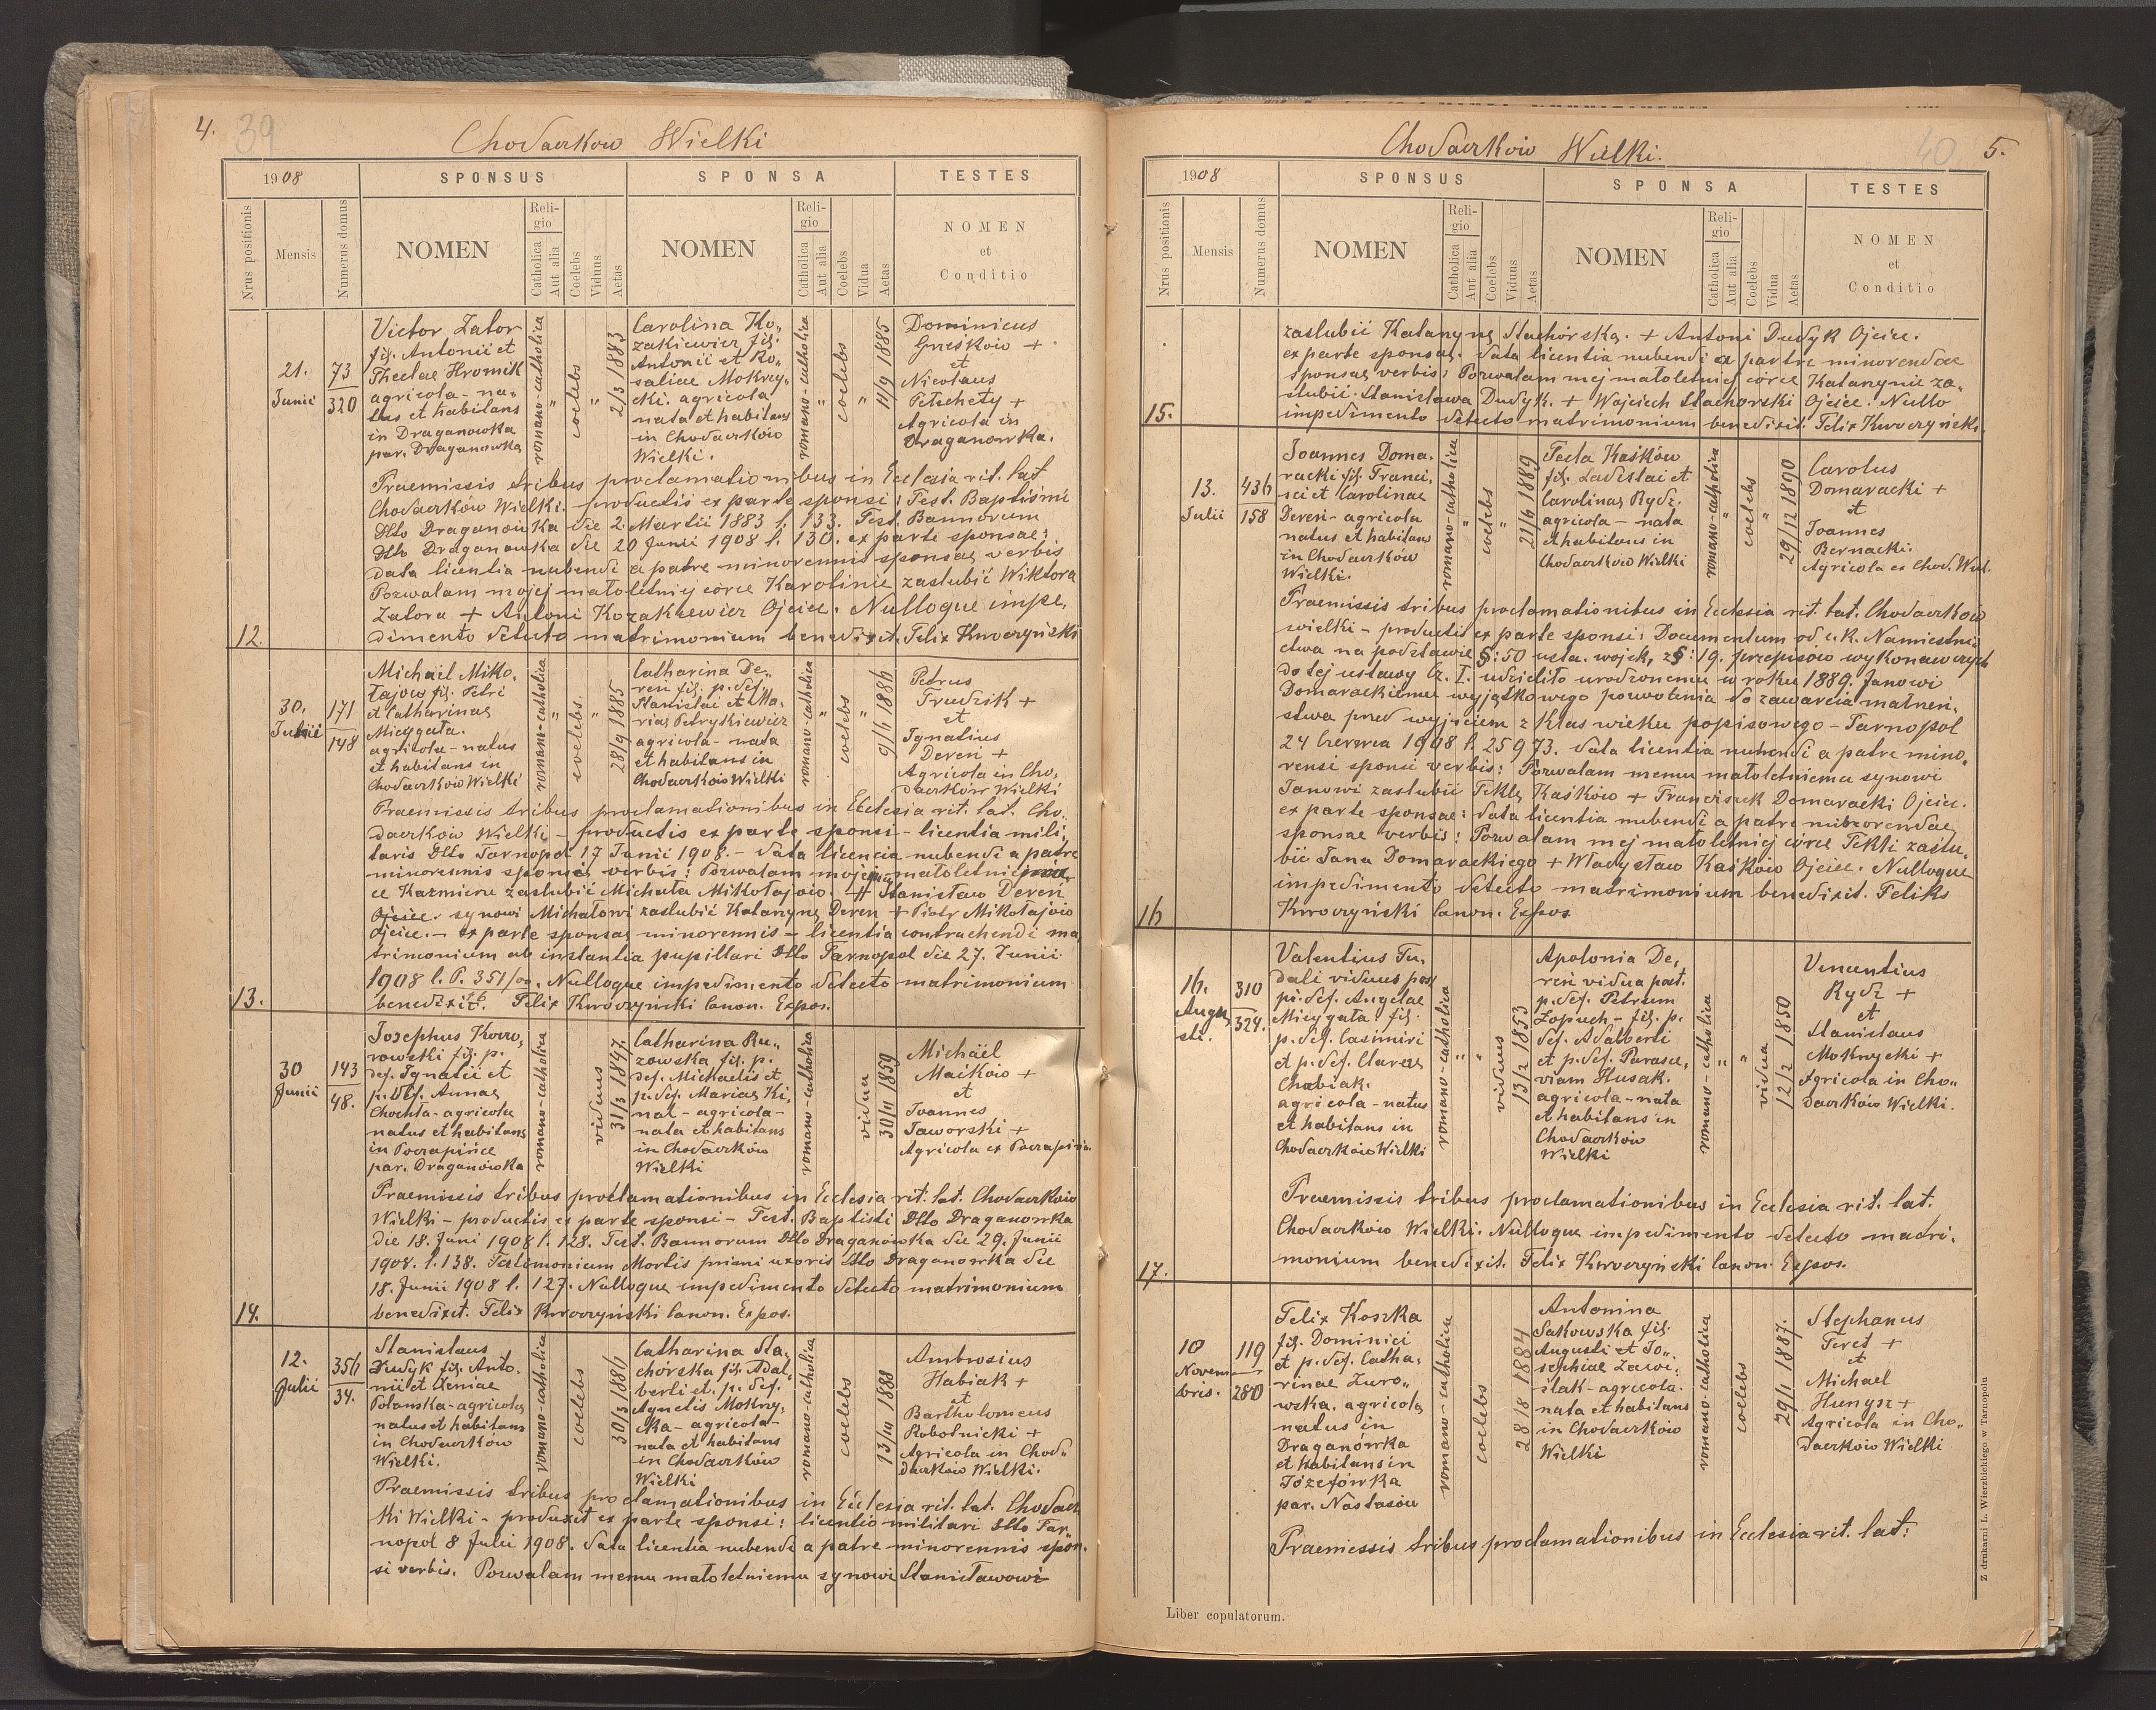 4. 39
Chodaczków Wielki
1908
SPONSUS
SPONSA
TESTES
Nrus positionis
Mensis
Numerus domus
NOMEN
Religio
Catholica
Aut alia
Coelebs
Viduus
Aetas
NOMEN
Religio
Catholica
Aut alia
Coelebs
Vidua
Aetas
NOMEN
et
Conditio
12.
21.
Junii
73
320
Victor Zator
fil. Antonii et
Theclae Hromik
agricola - na-
tus et habitans
in Draganowka
par. Draganowka
romano-catholica
"
coelebs
"
2/3 1883
Carolina Ko„
zakiewicz fil.
Antonii et Ro„
saliae Mokrzy„
cki. agricola
nata et habitans
in Chodaczków
Wielki.
romano-catholica
"
coelebs
"
11/9 1885
Dominicus
Greskow +
et
Nicolaus
Petschety +
Agricola in
Draganowka.
Praemissis tribus proclamationibus in Ecclesia rit. lat
Chodaczków Wielki. productis ex parte sponsi: Test. Baptismi
dto Draganowka die 2. Martii 1883 l. 133. Test. Bannorum
dto Draganowka die 20 Junii 1908 l. 130. ex parte sponsae:
data licentia nubendi a patre minorennis sponsae verbis
Pozwalam mojej małoletniej córce Karolinie zaslubić Wiktora
Zatora + Antoni Kozakiewicz Ojciec. Nulloque impe„
dimento detecto matrimonium benedixit. Felix Kwoczyński
13.
30.
Junii
171
148
Michael Miko„
łajow fil. Petri
et Catharinae
Miczygała.
agricola - natus
et habitans in
Chodaczków Wielki
romano-catholica
"
coelebs.
"
28/9 1885
Catharina De„
reń fil. p. def.
Stanislai et Ma„
riae Petryskiewicz
agricola - nata
et habitans in
Chodaczków Wielki
romano-catholica
"
coelebs
"
9/11 1886
Petrus
Trudzik +
et
Ignatius
Dereń +
Agricola in Cho„
daczków Wielki
Praemissis tribus proclamationibus in Ecclesia rit. lat. Cho„
daczków Wielki - productis ex parte sponsi - licentia mili„
taris dto Tarnopol 17 Junii 1908. - data licencia nubendi a patre
minorennis sponsi verbis: Pozwalam mojemu małoletnie
ce Kazmierze zaslubić Michała Mikołajow. + Stanisław Dereń
Ojciec. synowi Michałowi zaslubić Katarzynę Dereń + Piotr Mikołajow
Ojciec. - ex parte sponsae minorennis - licentia contrahendi ma„
trimonium ab instantia pupillari dto Tarnopol die 27. Junii
1908 l. P. 351/00. Nulloque impedimento detecto matrimonium
benedixit. Felix Kwoczyński Canon. Expos.
14.
30
Junii
143
48.
Josephus Kozo„
rowski fil. p.
def. Ignatii et
p. def. Annae
Chochła - agricola
natus et habitans
in Poczapińce
par. Draganówka
romano-catholica
viduus
31/3 1847.
Catharina Ru„
zowska fil. p.
def. Michaelis et
p. def. Mariae Ki„
nat - agricola -
nata et habitans
in Chodaczków
Wielki
romano-catholica
vidua
30/11 1859
Michäel
Maików +
et
Joannes
Jaworski +
Agricola ex Poczapińce.
Praemissis tribus proclamationibus in Ecclesia rit. lat. Chodaczków
Wielki - productis ex parte sponsi - Test. Baptisti dto Draganowka
die 18. Juni 1908 l. 128. Test. Bannorum dto Draganówka die 29. Junii
1908. l. 138. Testimonium Mortis primi uxoris dto Draganowka die
18. Junii 1908 l. 127. Nulloque impedimento detecto matrimonium
benedixit. Felix Kwoczyński Canon. Expos.
12.
Julii
356
34.
Stanislaus
Dudyk fil. Anto„
nii et Xeniae
Polanska - agricola
natus et habitans
in Chodaczków
Wielki.
romano-catholica
coelebs
30/3 1886
Catharina Sta„
chórska fil. Adal„
berti et. p. def.
Agnetis Mokrzy„
cka - agricola -
nata et habitans
in Chodaczków
Wielki
romano-catholica
coelebs
13/11 1888
Ambrosius
Habiak +
et
Bartholomeus
Robotnicki +
Agricola in Chod„
daczków Wielki.
Praemissis tribus proclamationibus in Ecclesia rit. lat. Chodacz
ki Wielki - produxit ex parte sponsi: licentio militari dto Tar„
nopol 8 Julii 1908. data licentia nubendi a patre minorennis spon„
si verbis. Pozwalam memu małoletniemu synowi Stanisławowi
Chodaczków Wielki.
40 5.
1908
SPONSUS
SPONSA
TESTES
Nrus positionis
Mensis
Numerus domus
NOMEN
Religio
Catholica
Aut alia
Coelebs
Viduus
Aetas
NOMEN
Religio
Catholica
Aut alia
Coelebs
Vidua
Aetas
NOMEN
et
Conditio
15.
zaslubić Katarzynę Stachórską. + Antoni Dudyk Ojciec.
ex parte sponsae. data licentia nubendi a patre minorendae
sponsae verbis: Pozwalam mej małoletniej córce Katarzynie za„
slubić Stanisława Dudyk. + Wojciech Stachorski Ojciec. Nullo
impedimento detecto matrimonium benedixit. Felix Kwoczyński.
16
13.
Julii
436
158
Joannes Doma„
racki fil. Franci„
sci et Carolinae
Dereń - agricola
natus et habitans
in Chodaczków
Wielki.
romano-catholica
"
coelebs
"
21/6 1889
Tecla Kaśków
fil. Ladislai et
Carolinae Rydz.
agricola - nata
et habitans in
Chodaczków Wielki
romano-catholica
"
coelebs
"
29/12 1890
Carolus
Domaracki +
et
Joannes
Bernacki.
Agricola ex Chod. Wiel.
Praemissis tribus proclamationibus in Ecclesia rit. lat. Chodaczków
wielki - productis ex parte sponsi: Documentum od c.k. Namiestni„
ctwa na podstawie §: 50 usta. wojsk, z §: 19. przepisów wykonawczych
do tej ustawy Cz. I. udzieliło urodzonemu w roku 1889. Janowi
Domarackiemu wyjątkowego pozwolenia do zawarcia małżeń„
stwa przed wyjściem z klas wieku popisowego - Tarnopol
24 Czerwca 1908 l. 25973. data licentia nubendi a patre mino„
rensi sponsi verbis: Pozwalam memu małoletniemu synowi
Janowi zaslubić Teklę Kaśków + Franciszek Domaracki Ojciec.
ex parte sponsae: data licentia nubendi a patre minorendae
sponsae verbis: Pozwalam mej małoletniej córce Tekli zaslu„
bić Jana Domarackiego + Władysław Kaśków Ojciec. Nulloque
impedimento detecto matrimonium benedixit. Feliks
Kwoczyński Canon. Expos
17.
16.
Augu
sti.
310
324.
Valentius Tu„
dali viduus post
p. def. Angelae
Miczygała. fil.
p. def. Casimiri
et p. def. Clarae
Chabiak.
agricola - natus
et habitans in
Chodaczków Wielki
romano-catholica
"
"
viduus
13/2 1853
Apolonia De„
reń vidua post.
p. def. Petrum
Łopuch - fil. p.
def. Adalberti
et p. def. Parasce„
viam Husak.
agricola - nata
et habitans in
Chodaczków
Wielki
romano-catholica
"
"
vidua
12/2 1850
Vincentius
Rydz +
et
Stanislaus
Mokrzycki +
Agricola in Cho„
daczków Wielki.
Praemissis tribus proclamationibus in Ecclesia rit. lat.
Chodaczków Wielki. Nulloque impedimento detecto matri„
monium benedixit. Felix Kwoczyński Canon. Expos.
10
Novem
bris.
119
280
Felix Koszka
fil. Dominici
et p. def. Catha„
rinae Zuro„
wska. agricola
natus in
Draganówka
et habitans in
Józefówka
par. Nastasów
romano-catholica
coelebs
28/8 1884
Antonina
Sakowska fil.
Augusti et Jo„
sephiae Zawi„
ślak - agricola.
nata et habitans
in Chodaczków
Wielki
romano-catholica
coelebs
29/1 1887.
Stephanus
Feret +
et
Michael
Hungsz +
Agricola in Cho„
daczków Wielki
Praemissis tribus proclamationibus in Ecclesia rit. lat.
Liber copulatorum.
Z drukarni L. Wierzbickiego w Tarnopolu